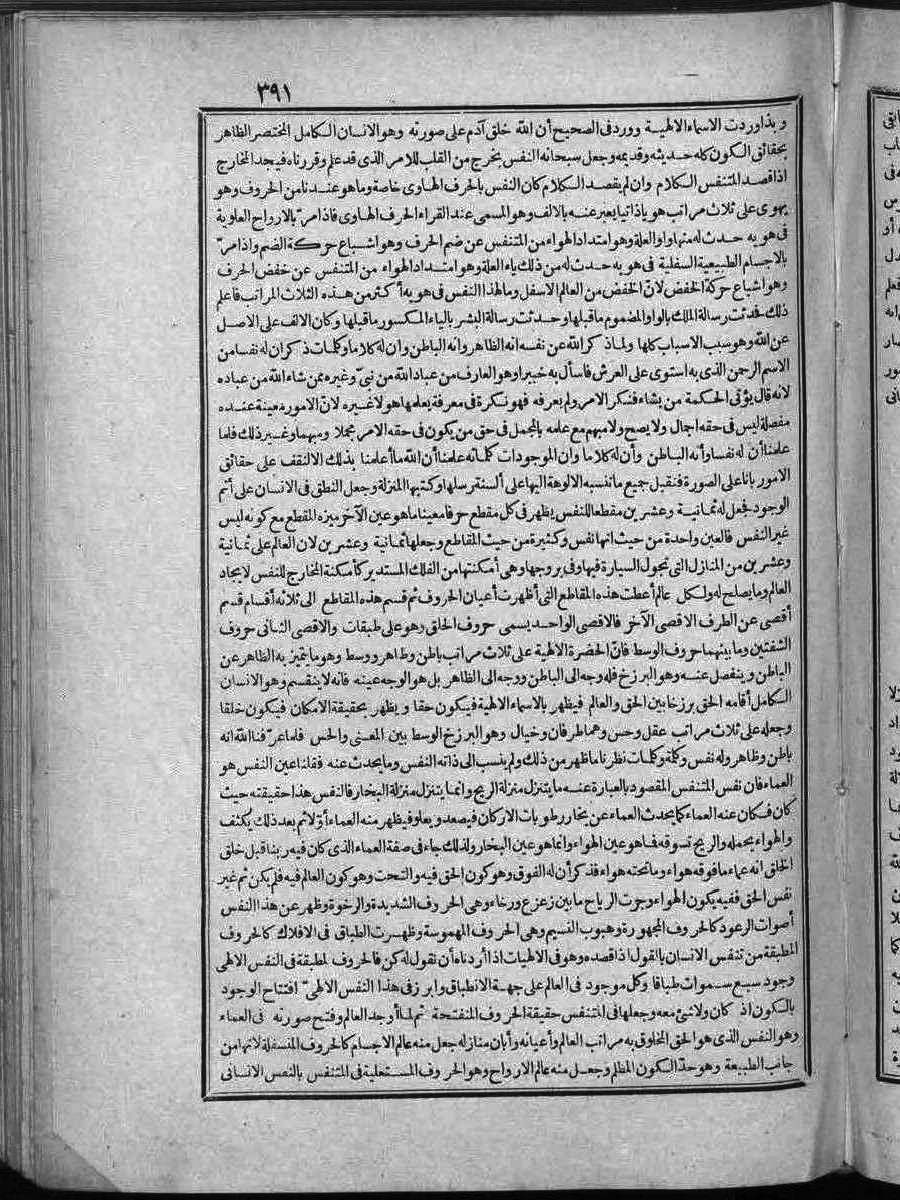 ٣٩١
وبذا وردت الاسماء الالهية ووردفى الصحيح أن الله خلق آدم على صورته وهو الانسان الكامل المختصر الظاهر
بحقائق الكون كله حديثه وقديمه وجعل سبحانه النفس يخرج من القلب للامر الذى قد علم وقررناه فيجد المخارج
اذا قصد المتنفس الكلام وان لم يقصد الكلام كان النفس بالحرف الهاوى خاصة وما هو عندنا من الحروف وهو
يهوى على ثلاث مراتب هويا ذاتيا يعبر عنه بالالف وهو المسمى عند القراء الحرف الهاوى فاذا مرّ بالارواح العلوية
فى هويه حدث له منها واو العلة وهو امتداد الهواء من المتنفس عن ضم الحرف وهو اشباع حركة الضم واذا مرّ
بالاجسام الطبيعية السفلية فى هويه حدث له من ذلك ياء العلة وهو امتداد الهواء من المتنفس عن خفض الحرف
وهو اشباع حركة الخفض لانّ الخفض من العالم الاسفل وما لهذا النفس فى هويه أكثر من هذه الثلاث المراتب فاعلم
ذلك فحدثت رسالة الملك بالواو المضموم ما قبلها وحدثت رسالة البشر بالياء المكسور ما قبلها وكان الالف على الاصل
عن الله وهو سبب الاسباب كلها ولما ذكر الله عن نفسه انه الظاهر وانه الباطن وان له كلاما وكلمات ذكر ان له نفسا من
الاسم الرحمن الذى به استوى على العرش فاسأل به خبيرا وهو العارف من عباد الله من نبىّ وغيره ممن شاء الله من عباده
لانه قال يؤتى الحكمة من يشاء فنكر الامر ولم يعرفه فهو نكرة فى معرفة يعلمها هو لا غيره لانّ الامور معينة عنده
مفصلة ليس فى حقه اجمال ولا يصح ولا مبهم مع علمه بالمجمل فى حق من يكون فى حقه الامر مجملا ومبهما وغير ذلك فلما
علمنا أن له نفسا وأنه الباطن وأن له كلاما وان الموجودات كلماته علمنا أن الله ما أعلمنا بذلك الا لنقف على حقائق
الامور بانا على الصورة فنقبل جميع ما تنسبه الالوهة اليها على ألسنة رسلها وكتبها المنزلة وجعل النطق فى الانسان على أتم
الوجود فجعل له ثمانية وعشرين مقطعا للنفس يظهر فى كل مقطع حرفا معينا ما هو عين الآخر ميزه المقطع مع كونه ليس
غير النفس فالعين واحدة من حيث انها نفس وكثيرة من حيث المقاطع وجعلها ثمانية وعشرين لان العالم على ثمانية
وعشرين من المنازل التى تجول السيارة فيها وفى بروجها وهى أمكنتها من الفلك المستدير كأمكنة المخارج للنفس لايجاد
العالم وما يصلح له ولكل عالم أعطت هذه المقاطع التى أظهرت أعيان الحروف ثم قسم هذه المقاطع الى ثلاثة أقسام قسم
أقصى عن الطرف الاقصى الآخر فالاقصى الواحد يسمى حروف الحلق وهو على طبقات والاقصى الثانى حروف
الشفتين وما بينهما حروف الوسط فانّ الحضرة الالهية على ثلاث مراتب باطن وظاهر ووسط وهو ما يتميز به الظاهر عن
الباطن وينفصل عنه وهو البرزخ فله وجه الى الباطن ووجه الى الظاهر بل هو الوجه عينه فانه لا ينقسم وهو الانسان
الكامل أقامه الحق برزخا بين الحق والعالم فيظهر بالاسماء الالهية فيكون حقا ويظهر بحقيقة الامكان فيكون خلقا
وجعله على ثلاث مراتب عقل وحس وهما طرفان وخيال وهو البرزخ الوسط بين المعنى والحس فلما عرّفنا الله انه
باطن وظاهر وله نفس وكلمة وكلمات نظرنا ما ظهر من ذلك ولم ينسب الى ذاته النفس وما يحدث عنه فقلنا عين النفس هو
العماء فان نفس المتنفس المقصود بالعبارة عنه ما يتنزل منزلة الريح وانما يتنزل منزلة البخار فالنفس هذا حقيقته حيث
كان فكان عنه العماء كما يحدث العماء عن بخار رطوبات الاركان فيصعد ويعلو فيظهر منه العماء أوّلا ثم بعد ذلك يكثف
والهواء يحمله والريح تسوقه فما هو عين الهواء وانما هو عين البخار ولذلك جاء فى صفة العماء الذى كان فيه ربنا قبل خلق
الخلق انه عماء ما فوقه هواء وما تحته هواء فذكر أن له الفوق وهو كون الحق فيه والتحت وهو كون العالم فيه فلم يكن ثم غير
نفس الحق ففيه يكون الهواء وجرت الرياح ما بين زعزع ورخاء وهى الحروف الشديدة والرخوة وظهر عن هذا النفس
أصوات الرعود كالحروف المجهورة وهبوب النسيم وهى الحروف المهموسة وظهرت الطباق فى الافلاك كالحروف
المطبقة من تنفس الانسان بالقول اذا قصده وهو فى الالهيات اذا أردناه أن نقول له كن فالحروف المطبقة فى النفس الالهى
وجود سبع سموات طباقا وكل موجود فى العالم على جهة الانطباق وابرز فى هذا النفس الالهىّ افتتاح الوجود
بالكون اذ كان ولا شئ معه وجعلها فى المتنفس حقيقة الحروف المنفتحة ثم لما أوجد العالم وفتح صورته فى العماء
وهو النفس الذى هو الحق المخلوق به مراتب العالم وأعيانه وأبان منازله جعل منه عالم الاجسام كالحروف المنسفلة لانها من
جانب الطبيعة وهو حدّ الكون المظلم وجعل منه عالم الارواح وهو الحروف المستعلية فى المتنفس بالنفس الانسانى